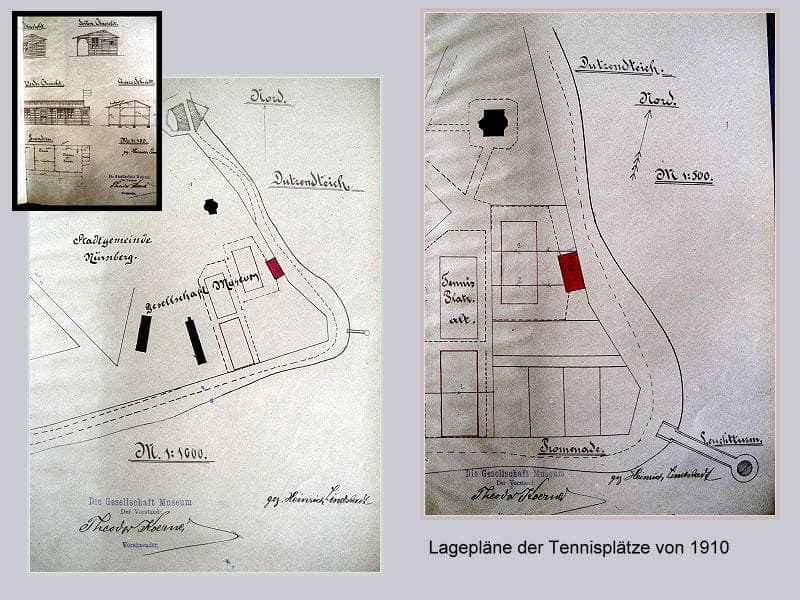 Seiten Ansicht
Vorder Ansicht
M. 1:100.
Die Gesellschaft Museum
Der Vorstand:
Theodor Koerner
Nord.
Dutzendteich.
Stadtgemeinde
Nürnberg.
Gesellschaft Museum
M. 1:1000.
Die Gesellschaft Museum
Der Vorstand:
Theodor Koerner
Vorsitzender.
gez. Heinrich
Dutzendteich.
Nord.
M 1:500.
Tennis
Platz
alt.
Leuchtturm.
Promenade.
Die Gesellschaft Museum
Der Vorstand:
Theodor Koerner
gez. Heinrich
Lagepläne der Tennisplätze von 1910